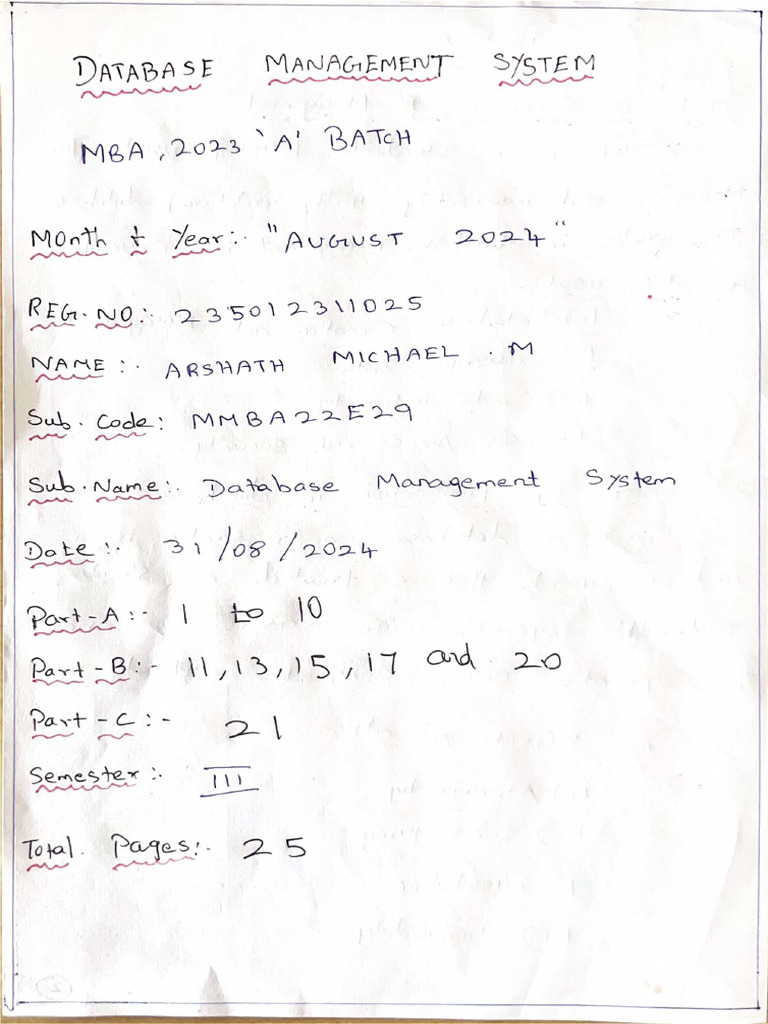 DATABASE MANAGEMENT SYSTEM
MBA, 2023 'A' BATCH
Month & Year:- "AUGUST 2024"
REG. NO:- 235012311025
NAME:- ARSHATH MICHAEL . M
Sub. Code: MMBA22E29
Sub. Name:- Database Management System
Date:- 31/08/2024
Part-A:- 1 to 10
Part-B:- 11, 13, 15, 17 and 20
Part-C:- 21
Semester:- III
Total Pages:- 25